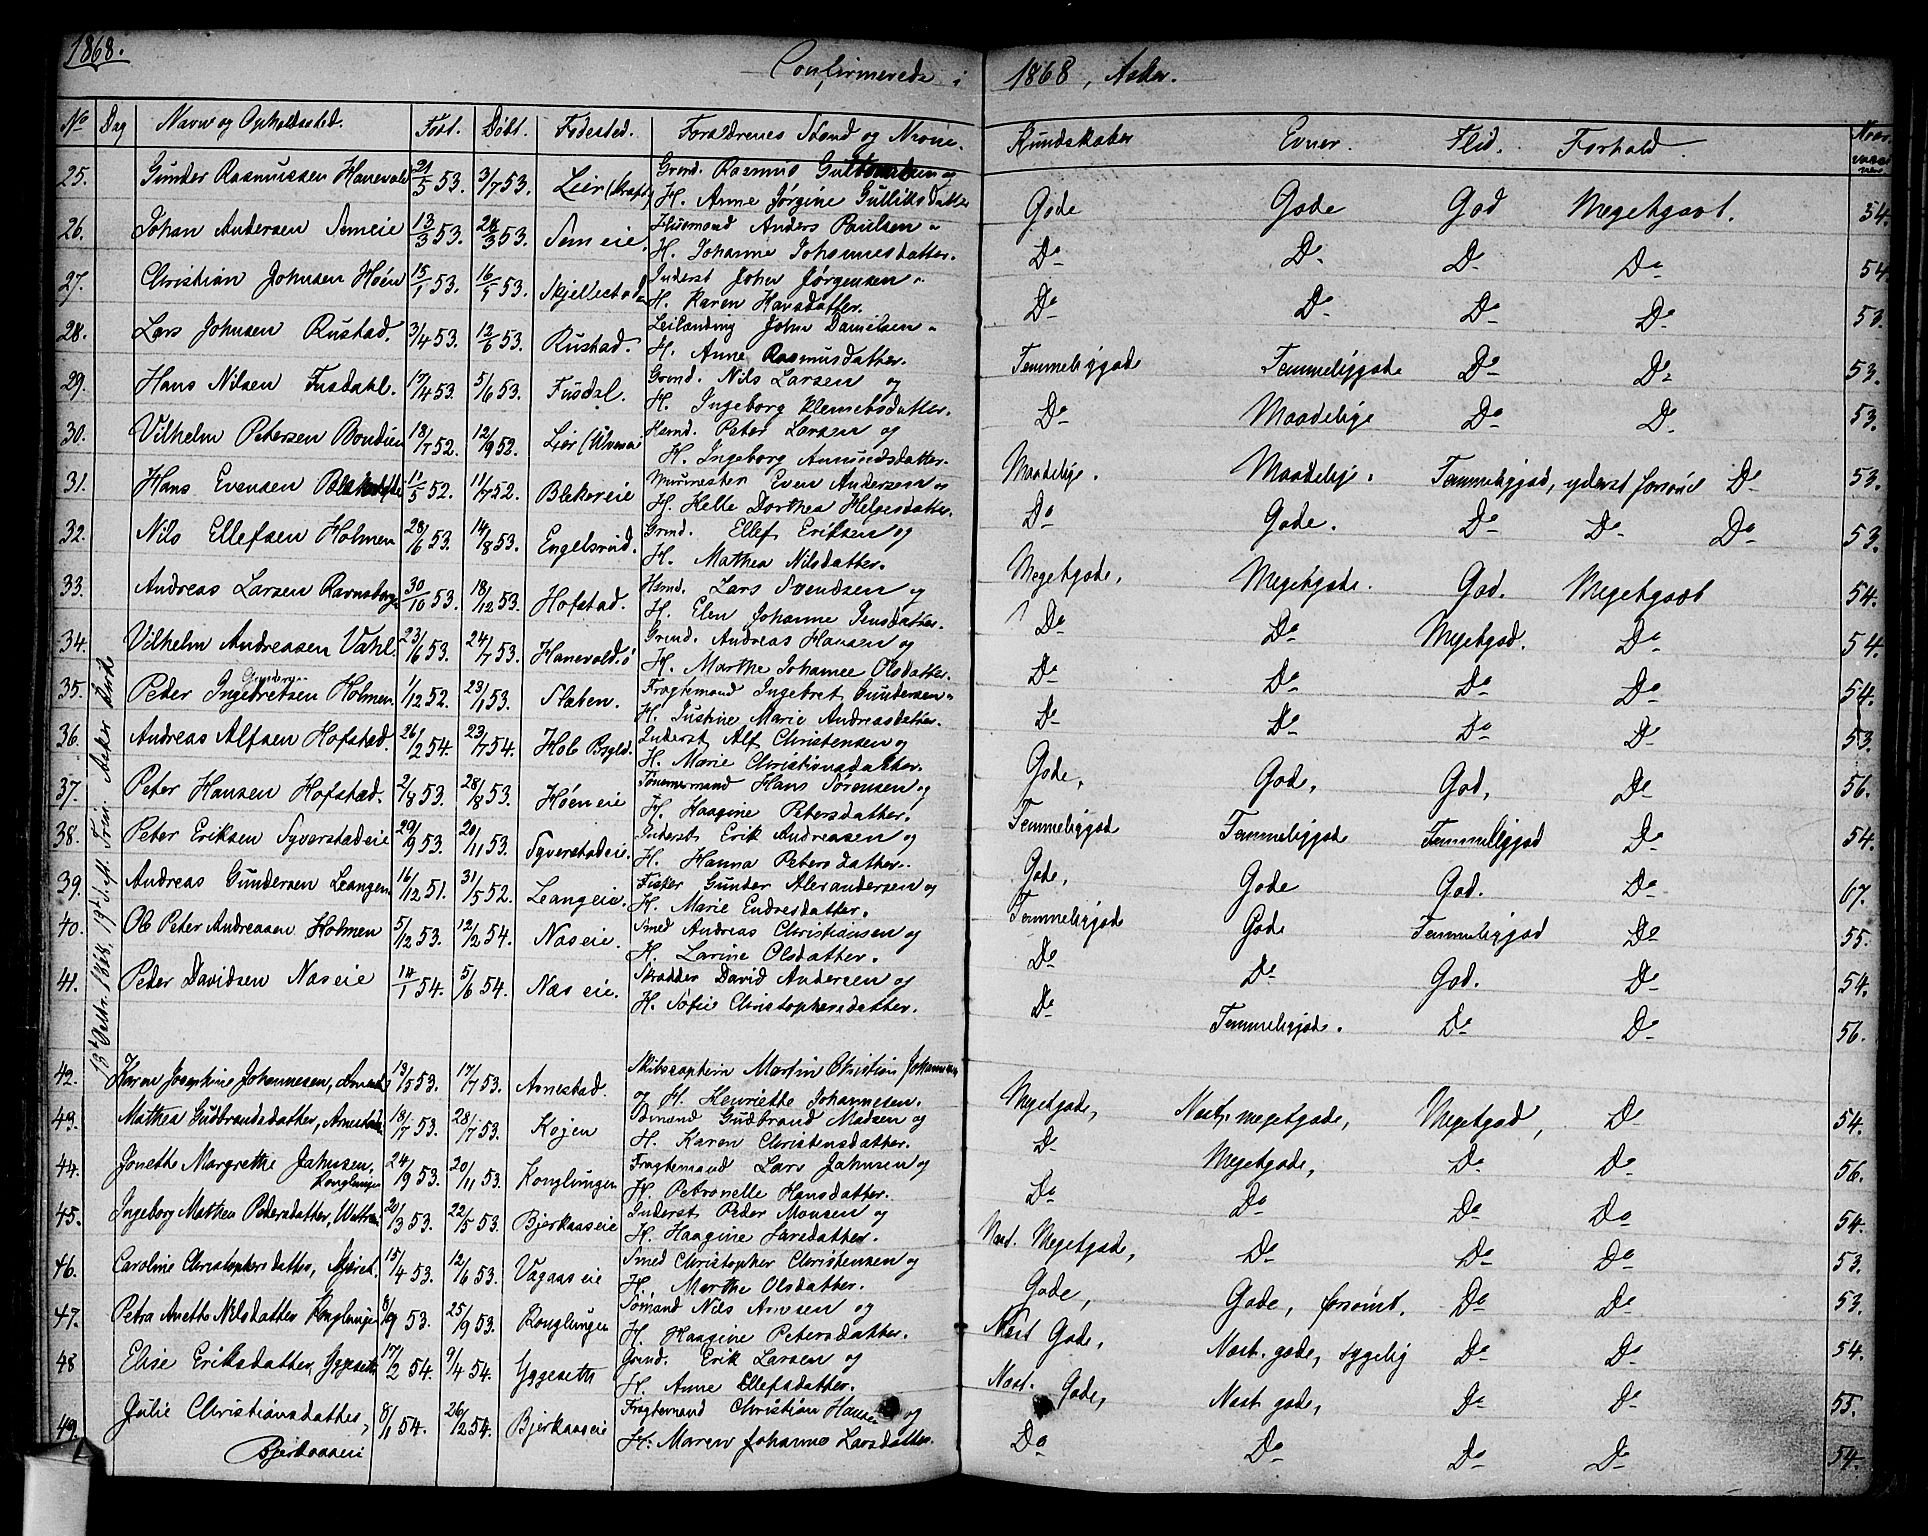 1868.
Confirmerede i 1868, Asker.
No Dag Navn og Opholdssted. Født. Døbt. Fødested. Forældrenes Stand og Navne. Kundskaber Evner. Flid. Forhold.
25. Gunder Rasmussen Hanevold 21/5 53. 3/7 53. Lier Grmd. Rasmus og Gode Gode God Megetgodt. 54.
H. Anne Jørgine Gulliksdatter
26. Johan Andersen Semeie 13/3 53. 28/3 53. Semeie. Huusmand Anders Paulsen " Do Do Do Do 54
H. Johanne Johannesdatter.
27. Christian Johnsen Høen 15/1 53. 16/5 53. Skjellestad Inderst John Jørgensen " Do Do Do Do 53.
H. Karen Hansdatter.
28. Lars Johnsen Rustad. 3/4 53. 12/6 53. Rustad. Leilænding John Danielsen " Temmeliggode Temmeliggode Do Do 53.
H. Anne Rasmusdatter.
29. Hans Nilsen Fusdahl. 17/4 53. 5/6 53. Fusdal. Grmd. Nils Larsen og Do Maadelige Do Do 53.
H. Ingeborg Klemetsdatter.
30. Vilhelm Petersen Bondi 18/7 52. 12/9 52. Lier Hsmd. Peter Larsen og Maadelige. Maadelige. Temmeliggod, yderst forsømt Do 53.
H. Ingeborg Amundsdatter.
31. Hans Evensen 12/5 52. 11/7 52. Blekereie Murmester Even Andersen og Do Gode. Do Do Do 53.
H. Helle Dorthea Helgesdatter.
32. Nils Ellefsen Holmen 28/6 53. 14/8 53. Engelsrud. Grmd. Ellef Eriksen og Megetgode, Megetgode. God. Megetgodt 54.
H. Mathea Nilsdatter.
33. Andreas Larsen Ravnsborg 30/10 53. 18/12 53. Hofstad. Hsmd. Lars Svendsen og Do Do Megetgod. Do 54.
H. Elen Johanne Jensdatter.
34. Vilhelm Andreasen Vahl. 23/6 53. 24/7 53. Hanevold Grmd. Andreas Hansen og Do Do Do Do 54.
H. Marthe Johanne Olsdatter.
35. Peder Ingebretsen Holmen 1/12 52. 23/1 53. Slaben. Fragtemand Ingebret Gundersen " Do Do Do Do 53.
H. Justine Marie Andreasdatter.
36. Andreas Alfsen Hofstad. 26/2 54. 23/7 54. Hol Inderst Alf Christensen og Gode, Gode, God, Do 56.
H. Marie Christiansdatter.
37. Peter Hansen Hofstad. 2/8 53. 28/8 53. Høeneie Tømmermand Hans Sørensen og Temmeliggode Temmeliggode Temmeliggod Do 54.
H. Haagine Petersdatter.
38. Peter Eriksen Syverstadeie 29/9 53. 20/11 53. Syverstadeie. Inderst Erik Andreasen og Gode, Gode God. Do 67.
H. Hanna Petersdatter.
39. Andreas Gundersen Leangen 16/12 51. 31/5 52. Leangeie. Fisker Gunder Alexandersen og Temmeliggode Gode Temmeliggod Do 55.
H. Marie Endresdatter.
40. Ole Peter Andreasen Holmen 5/12 53. 12/2 54. Næseie. Smed Andreas Christiansen og Do Do God. Do 54.
H. Larine Olsdatter.
41. Peder Davidsen Næseie 14/1 54. 5/6 54. Næseie. Skrædder David Andersen og Do Temmeliggode. Do Do 56.
H. Sofie Christophersdatter.
18d Octbr. 1868, 19d S. e. Trin. i Asker Kirke
42. Karen Josephine Johannesen, 13/5 53. 17/7 53. Arnestad. Skibscaptein Martin Christian Johannesen
og H. Henriette Johannesen. Megetgode, Næst. megetgode, Megetgod, Do 54.
43. Mathea Gudbrandsdatter, Arnestad 18/7 53. 28/7 53. Kojen Sømand Gudbrand Madsen og Do Megetgode, Do Do 56.
H. Karen Christensdatter.
44. Jonette Margrethe Jahnsen, Konglungen 24/9 53. 20/11 53. Konglungen Fragtemand Lars Jahnsen og Do Do Do Do 54.
H. Petronelle Hansdatter.
45. Ingeborg Mathea Pedersdatter, 20/3 53. 22/5 53. Bjerkaaseie Inderst Peder Monsen og Næst. Megetgode, Do Do Do 53.
H. Haagine Larsdatter.
46. Caroline Christophersdatter, 15/4 53. 12/6 53. Vagaaseie Smed Christopher Christensen og Gode, Gode, forsømt. Do Do 53.
H. Marthe Olsdatter.
47. Petra Anette Nilsdatter Konglungen 8/9 53. 25/9 53. Konglungen Sømand Nils Arnesen og Næst Gode, Næst. gode, sygelig Do Do 54.
H. Haagine Petersdatter.
48 Elise Eriksdatter, Yggeseth 17/2 54. 9/4 54. Yggeseth Grmd. Erik Larsen og Næst. Gode, Næst gode, Do Do 55.
H. Anne Ellefsdatter.
49. Julie Christiansdatter, 8/1 54. 26/2 54. Bjerkaaseie Fragtemand Christian Hansen og Do Do Do Do 54.
Bjerkaaseie H. Maren Johanne Larsdatter.